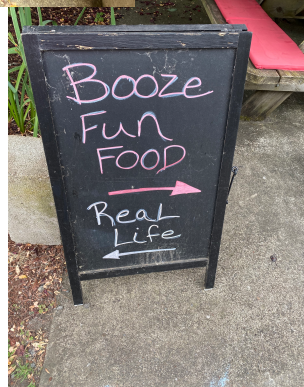 Booze
Fun
FOOD
Real
Life